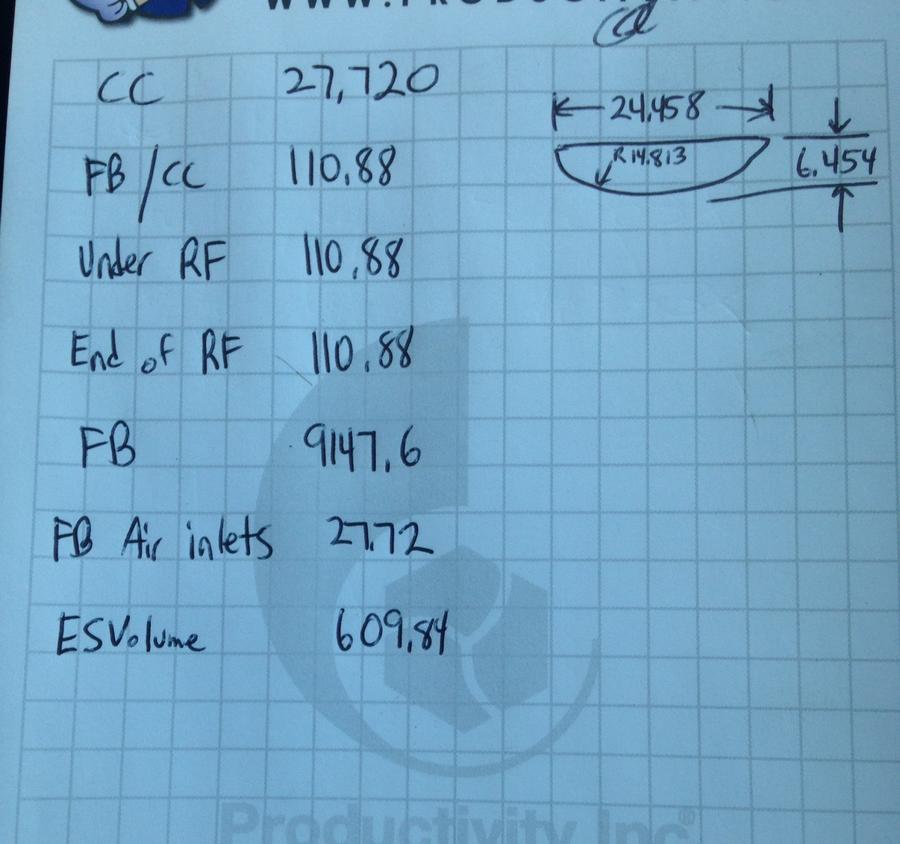 CC 27,720
FB/CC 110.88
Under RF 110.88
End of RF 110.88
FB 9147.6
FB Air inlets 27.72
ESVolume 609.84
24.458
R 14.813
6.454
Productivity Inc®